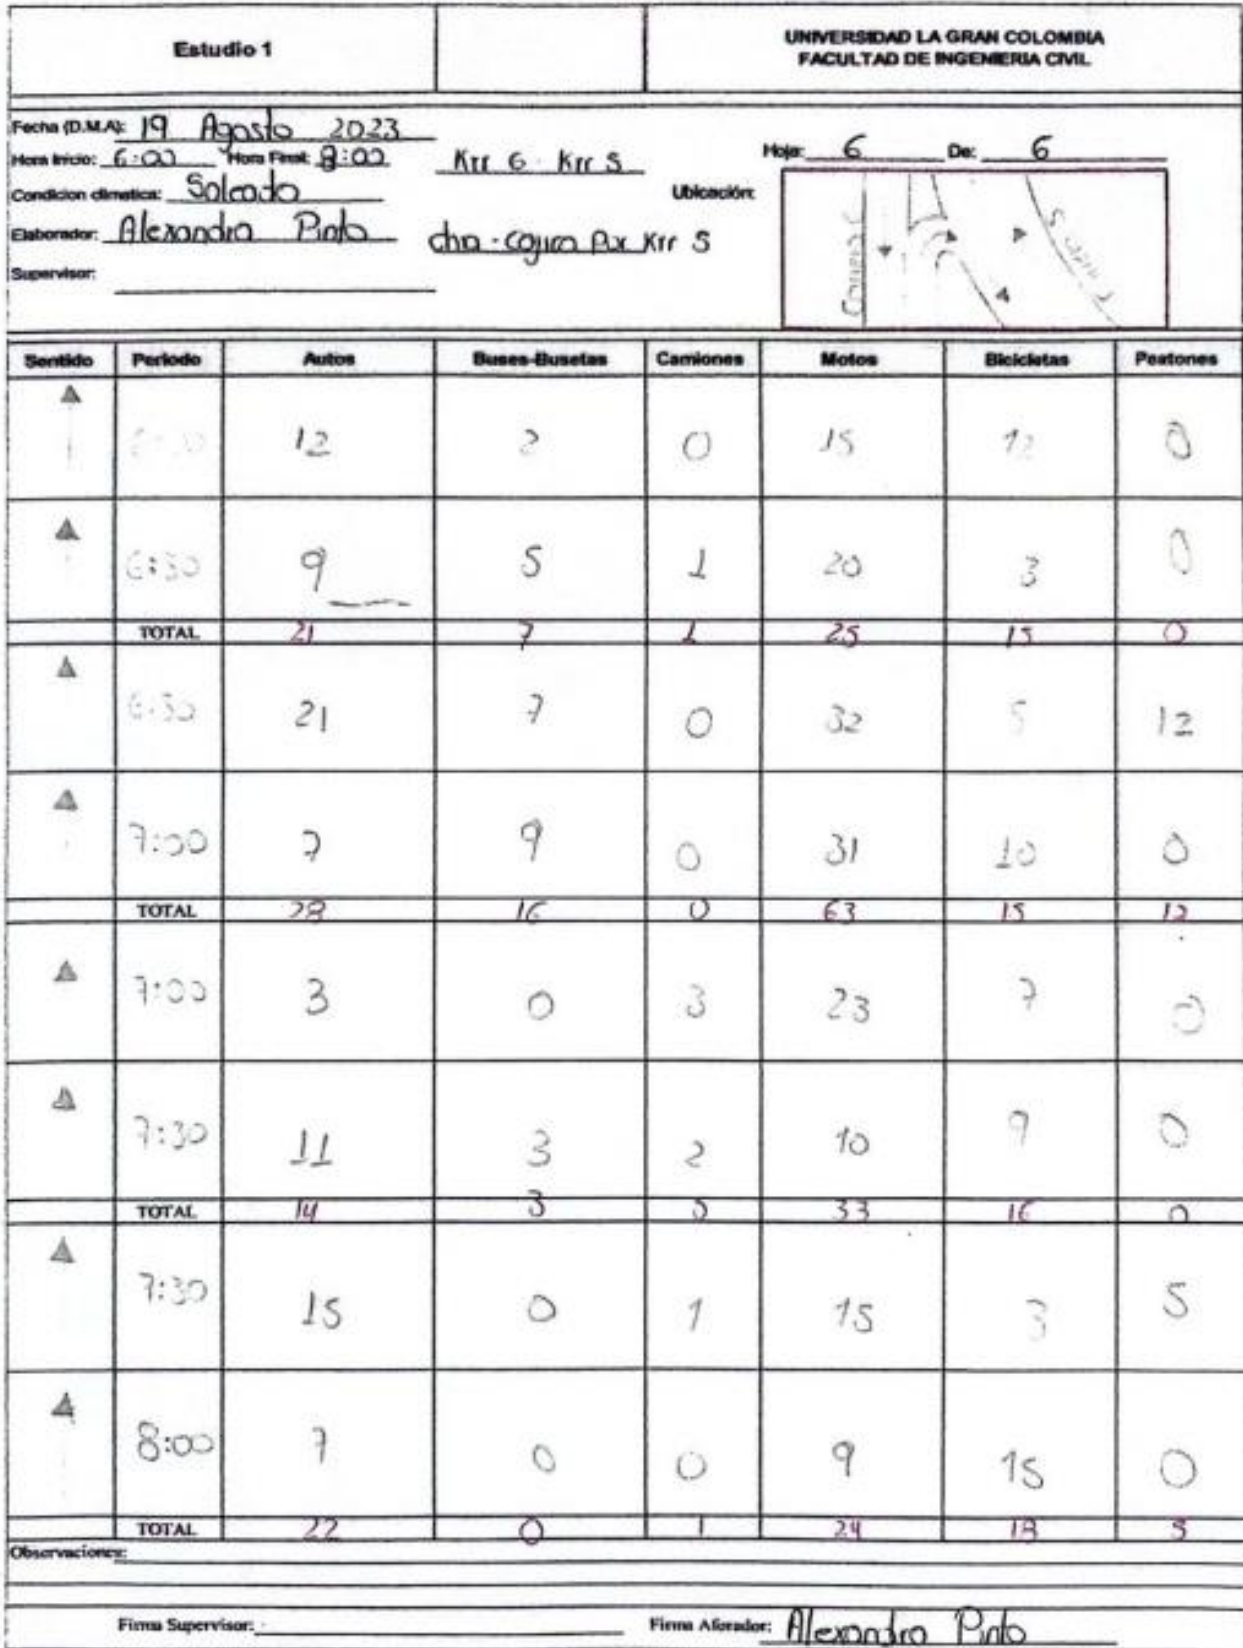 Estudio 1
UNIVERSIDAD LA GRAN COLOMBIA
FACULTAD DE INGENIERIA CIVIL
Fecha (D.M.A): 19 Agosto 2023
Hora Inicio: 6:00 Hora Final: 8:00 Krr 6 Krr 5 Hoja: 6 De: 6
Condicion climatica: Soleado Ubicación:
Elaborador: Alexandra Pinto chia - cajica Por Krr 5
Supervisor:
Sentido Periodo Autos Buses-Busetas Camiones Motos Bicicletas Peatones
6:00 12 2 0 15 12 0
6:30 9 5 1 20 3 0
TOTAL 21 7 1 25 15 0
6:30 21 7 0 32 5 12
7:00 7 9 0 31 10 0
TOTAL 28 16 0 63 15 12
7:00 3 0 3 23 7 0
7:30 11 3 2 10 9 0
TOTAL 14 3 5 33 16 0
7:30 15 0 1 15 3 5
8:00 7 0 0 9 15 0
TOTAL 22 0 1 24 18 5
Observaciones:
Firma Supervisor: Firma Aforador: Alexandra Pinto